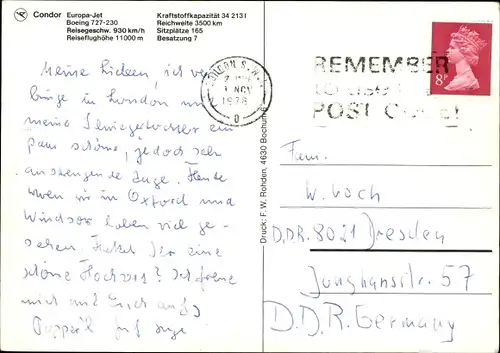 Condor Europa-Jet
Boeing 727-230
Reisegeschw. 930 km/h
Reiseflughöhe 11000 m
Kraftstoffkapazität 34 213 l
Reichweite 3500 km
Sitzplätze 165
Besatzung 7
Meine Lieben, ich ver
bringe in London mit
meine Schwiegertochter ein
paar schöne, jedoch sehr
anstrengende Tage. Heute
waren wir in Oxford und
Windsor haben viel ge-
sehen. Hattet Ihr eine
schöne Hochzeit? Ich freue
mich mit Euch auf's
LONDON S.W.1
1 NOV
1978
REMEMBER
TO USE THE
POST CODE!
8P
Druck: F. W. Rohden, 4630 Bochum 6
Fam.
W. Koch
D.D.R. 8021 Dresden
Junghansstr. 57
D.D.R. Germany